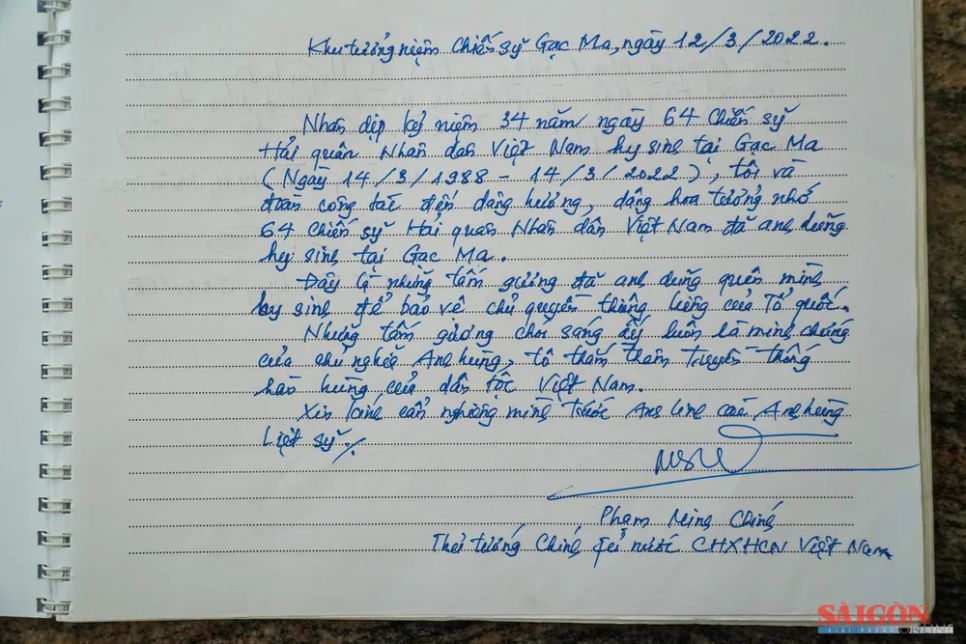 Khu tưởng niệm Chiến sỹ Gạc Ma, ngày 12/3/2022.
Nhân dịp kỷ niệm 34 năm ngày 64 chiến sỹ
Hải quân Nhân dân Việt Nam hy sinh tại Gạc Ma
(Ngày 14/3/1988 - 14/3/2022), tôi và
đoàn công tác đến dâng hương, dâng hoa tưởng nhớ
64 chiến sỹ Hải quân Nhân dân Việt Nam đã anh dũng
hy sinh tại Gạc Ma.
Đây là những tấm gương đã anh dũng quên mình
hy sinh để bảo vệ chủ quyền thiêng liêng của Tổ quốc.
Những tấm gương chói sáng ấy luôn là minh chứng
của chủ nghĩa Anh hùng, tô thắm thêm truyền thống
hào hùng của dân tộc Việt Nam.
Xin kính cẩn nghiêng mình trước Anh linh các Anh hùng
Liệt sỹ./.
Phạm Minh Chính
Thủ tướng Chính phủ nước CHXHCN Việt Nam
SÀIGÒN
GIẢI PHÓNG ONLINE